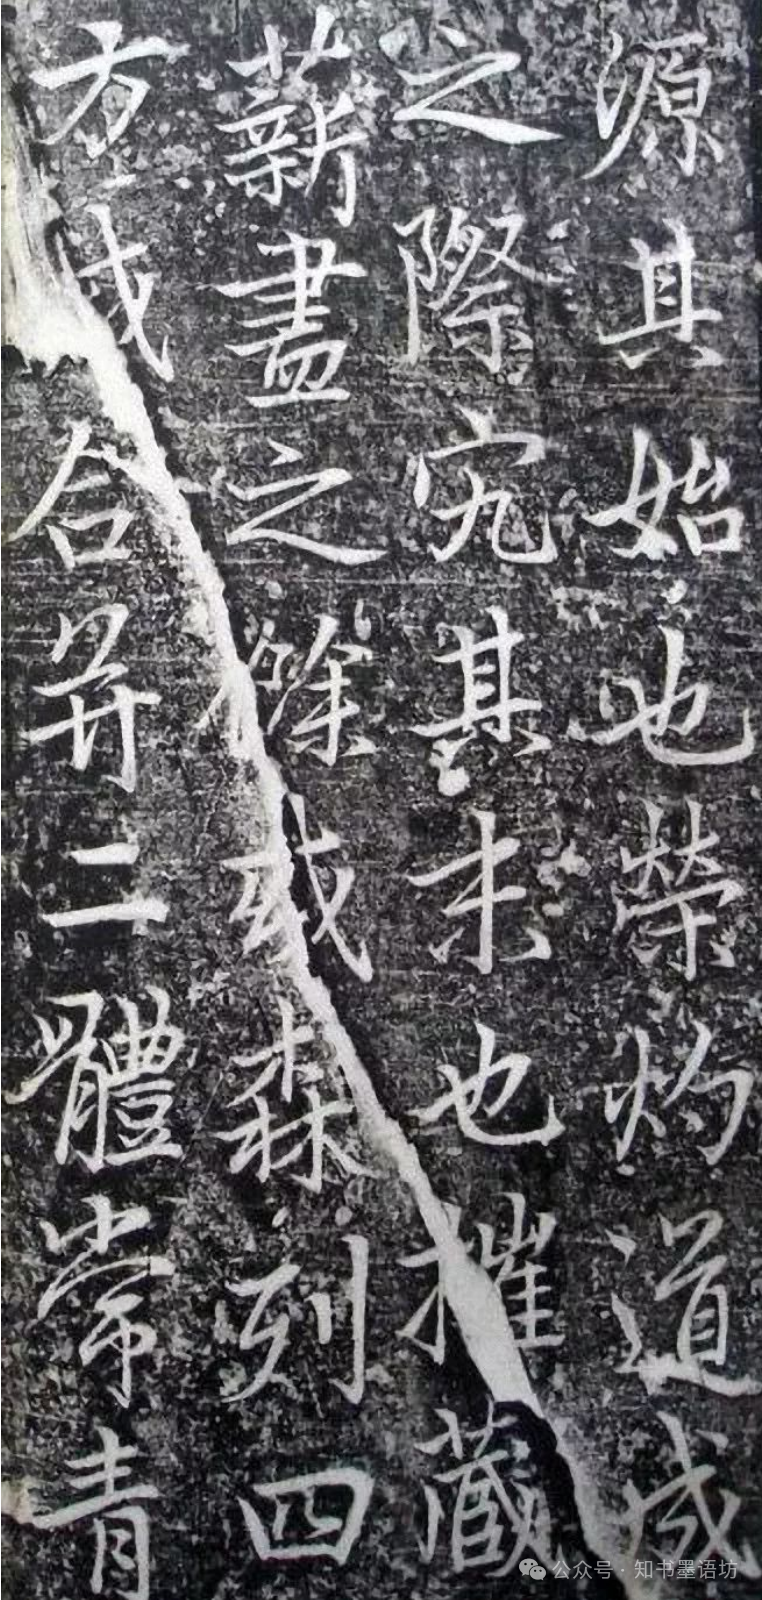 源其始也榮灼道成
之際究其末也摧藏
薪盡之餘或森列四
方或合并二體常青
公众号 · 知书墨语坊